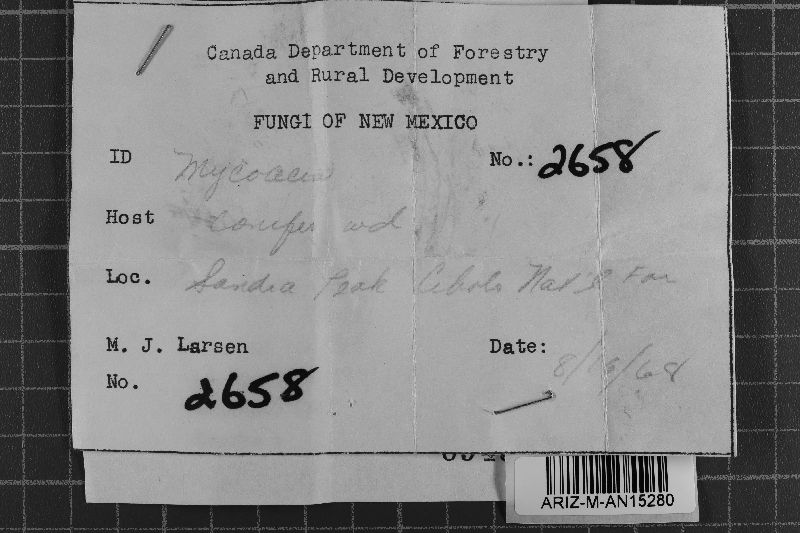 Canada Department of Forestry
and Rural Development
FUNGI OF NEW MEXICO
ID Mycoacia No.: 2658
Host Conifer wd
Loc. Sandia Peak Cibola Nat'l For
M. J. Larsen Date: 8/ /68
No. 2658
ARIZ-M-AN15280